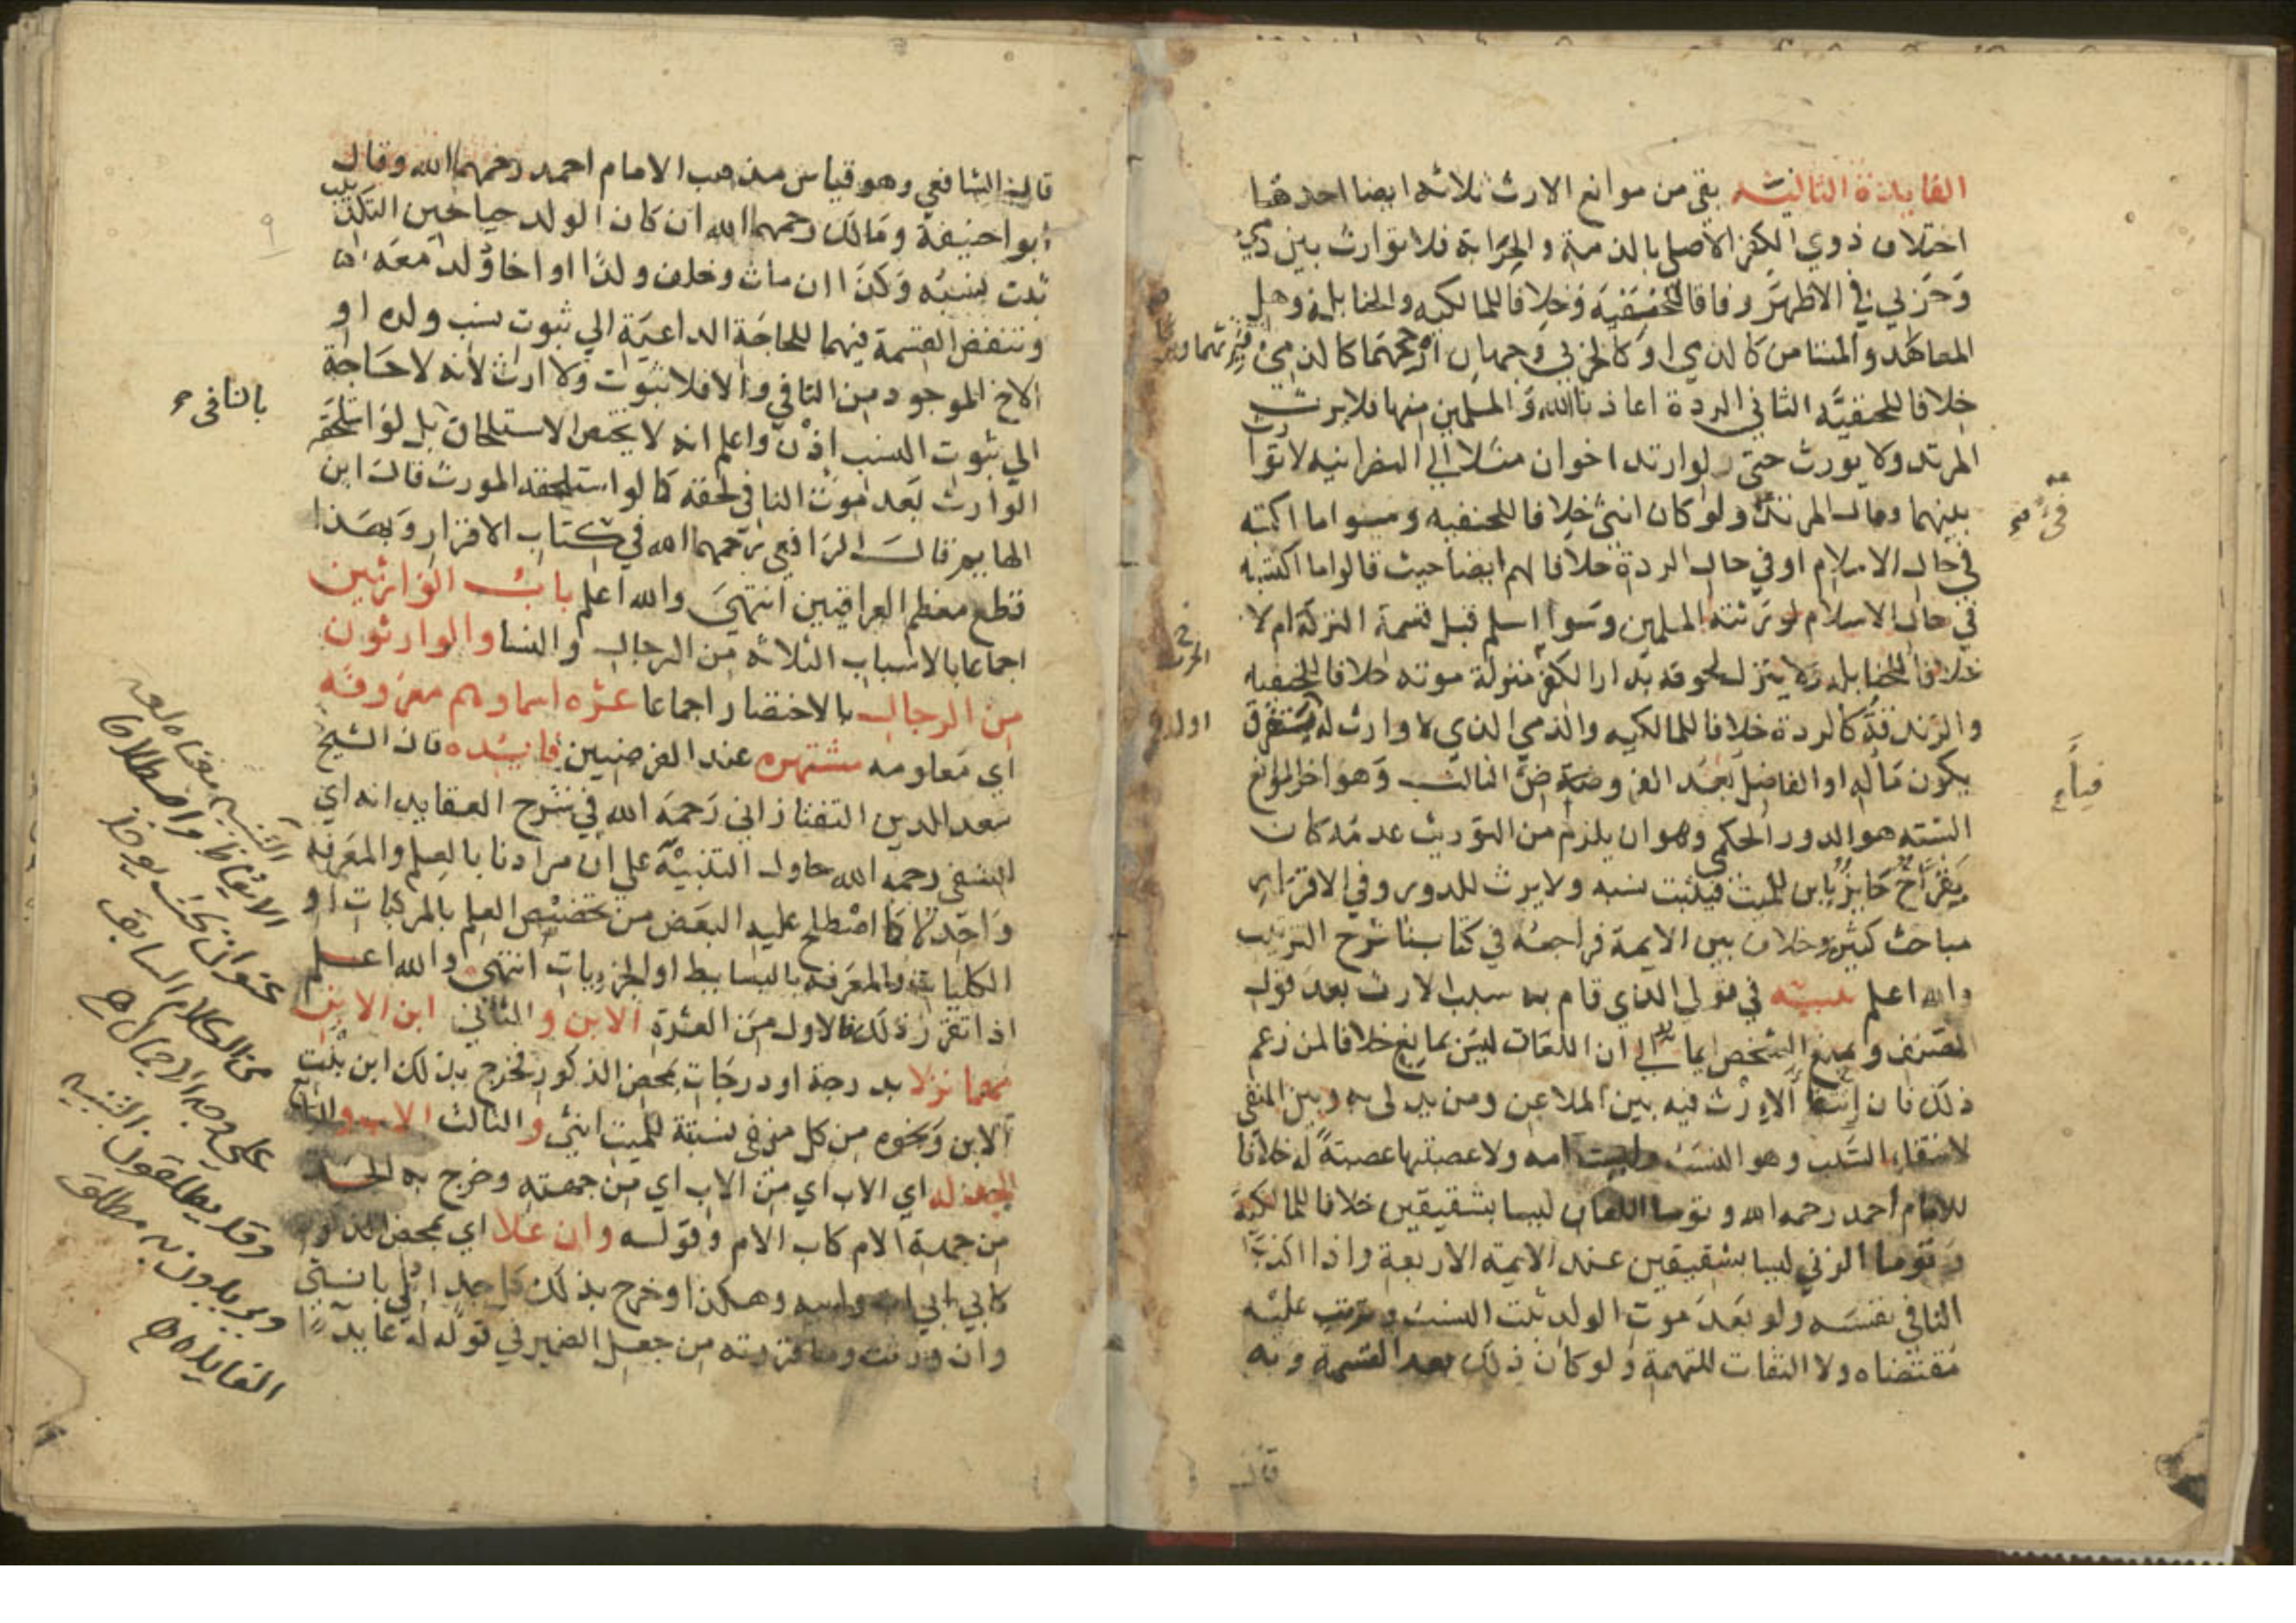 الفايدة الثالثة بقي من موانع الارث ثلاثه ايضا احدها
اختلاف ذوي الكفر الاصلي بالذمة والحرابة فلا توارث بين ذمي
وحربي في الاظهر وفاقا للحنفيه وخلافا للمالكيه والحنابلة وهل
المعاهد والمستامن كالذمي او كالحربي وجهان ارجحهما كالذمي
خلافا للحنفيه الثاني الردة اعاذنا الله والمسلمين منها فلا يرث
المرتد ولا يورث حتى لو ارتد اخوان مثلا الي النصرانيه لا توارث
بينهما ومال المرتد ولو كان انثى خلافا للحنفيه وسوا ما اكتسبه
في حال الاسلام او في حال الردة خلافا لهم ايضا حيث قالوا ما اكتسبه
في حال الاسلام لورثته المسلمين وسوا اسلم قبل قسمة التركة ام لا
خلافا للحنابله ولا ينزل لحوقه بدار الكفر منزلة موته خلافا للحنفيه
والزندقة كالردة خلافا للمالكيه والذمي الذي لا وارث له يستغرق
يكون ماله او الفاضل بعد الفروض الثالث وهو اخر الموانع
الستة هو الدور الحكمي وهو ان يلزم من التوريث عدمه كان
يقر اخ حايز بابن للميت فيثبت نسبه ولا يرث للدور وفي الاقرار
مباحث كثيرة وخلاف بين الايمة فراجعه في كتابنا شرح الترتيب
والله اعلم تنبيه في قولي الذي قام به سبب الارث بعد قول
المصنف ويمنع الشخص ايما الي ان اللعان ليس بمانع خلافا لمن زعم
ذلك فان انتفا الارث فيه بين الملاعن ومن يدلي به وبين المنفي
لانتفاء السبب وهو النسب وليست امه ولا عصبتها عصبة له خلافا
للامام احمد رحمه الله وتوما اللعان ليسا بشقيقين خلافا للمالكية
وتوما الزني ليسا بشقيقين عند الايمة الاربعة واذا اكذب
النافي نفسه ولو بعد موت الولد ثبت النسب وترتب عليه
مقتضاه ولا التفات للتهمة ولو كان ذلك بعد القسمة وبه
قال
قال الشافعي وهو قياس مذهب الامام احمد رحمهما الله وقال
ابو حنيفة ومالك رحمهما الله ان كان الولد حيا حين التكذيب
ثبت نسبه وكذا ان مات وخلف ولدا او اخا ولد معه
وتنقض القسمة فيهما للحاجة الداعية الي ثبوت نسب ولده او
الاخ الموجود من النافي والا فلا ثبوت ولا ارث لانه لا حاجة
الي ثبوت النسب اذن واعلم انه لا يختص الاستلحاق بل لو استلحق
الوارث بعد موت النافي لحقه كما لو استلحقه المورث قال ابن
الهايم قال الرافعي رحمهما الله في كتاب الاقرار وبهذا
قطع معظم العراقيين انتهي والله اعلم باب الوارثين
اجماعا بالاسباب الثلاثه من الرجال والنسا والوارثون
من الرجال بالاختصار اجماعا عشره اسماوهم معروفه
اي معلومه مشتهره عند الفرضيين فايده قال الشيخ
سعد الدين التفتازاني رحمه الله في شرح العقايد انه اي
النسفي رحمه الله حاول التنبيه علي ان مرادنا بالعلم والمعرفه
واحد لا كما اصطلح عليه البعض من تخصيص العلم بالمركبات او
الكليات والمعرفه بالبسايط او الجزييات انتهى والله اعلم
اذا تقرر ذلك فالاول من العشرة الابن والثاني ابن الابن
مهما نزلا بدرجة او درجات بمحض الذكور فخرج بذلك ابن بنت
الابن ونحوه من كل من في نسبته للميت انثي والثالث الاب والرابع
الجد له اي الاب اي من الاب اي من جهته وخرج به الجد
من جهة الام كاب الام وقوله وان علا اي بمحض الذكور
كابي ابي اب وابيه وهكذا وخرج بذلك كل جد ادلي بانثي
وان ورثت وما قررته من جعل الضمير في قوله له عايدا
بالنافى
التنبيه معناه لغة
الايقاظ واصطلاحا
عنوان بحث يوخذ
من الكلام السابق
على وجه الاجمال اه
وقد يطلقون التنبيه
ويريدون به مطلق
الفايدة اه